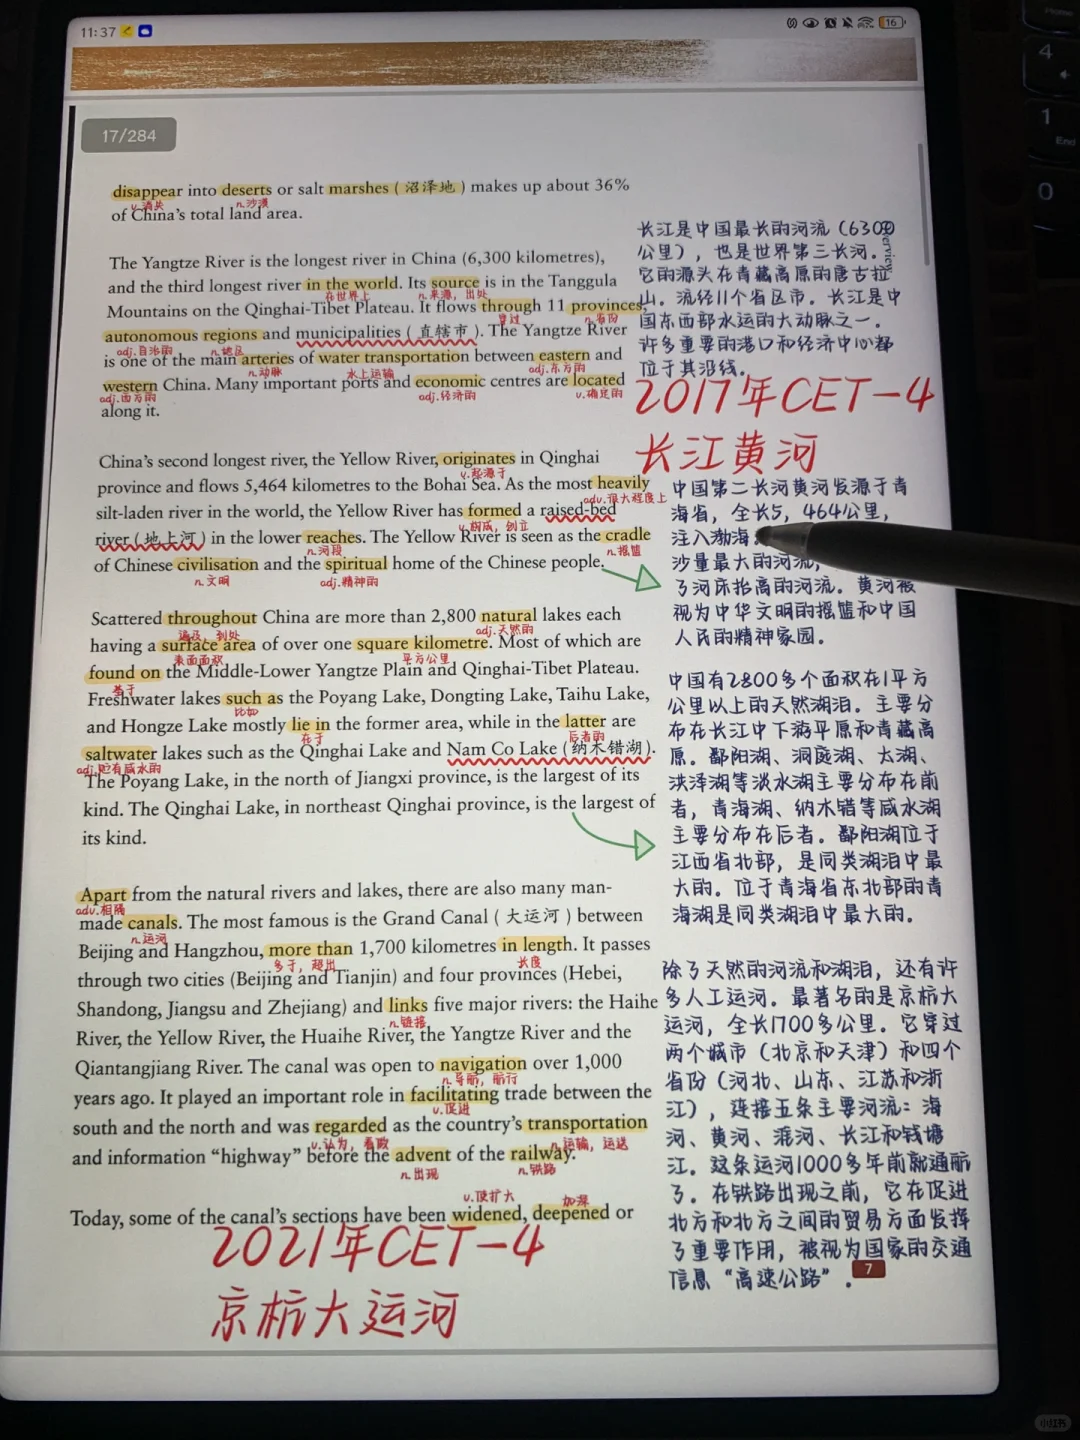 11:37
16
17/284
disappear into deserts or salt marshes (沼泽地) makes up about 36%
v.消失 n.沙漠
of China's total land area.
The Yangtze River is the longest river in China (6,300 kilometres),
and the third longest river in the world. Its source is in the Tanggula
在世界上 n.来源,出处
Mountains on the Qinghai-Tibet Plateau. It flows through 11 provinces,
穿过 n.省份
autonomous regions and municipalities (直辖市). The Yangtze River
adj.自治的 n.地区
is one of the main arteries of water transportation between eastern and
n.动脉 水上运输 adj.东方的
western China. Many important ports and economic centres are located
adj.西方的 adj.经济的 v.确定的
along it.
China's second longest river, the Yellow River, originates in Qinghai
v.起源于
province and flows 5,464 kilometres to the Bohai Sea. As the most heavily
adv.很大程度上
silt-laden river in the world, the Yellow River has formed a raised-bed
v.构成,创立
river (地上河) in the lower reaches. The Yellow River is seen as the cradle
n.河段 n.摇篮
of Chinese civilisation and the spiritual home of the Chinese people.
n.文明 adj.精神的
Scattered throughout China are more than 2,800 natural lakes each
遍及,到处 adj.天然的
having a surface area of over one square kilometre. Most of which are
表面面积 平方公里
found on the Middle-Lower Yangtze Plain and Qinghai-Tibet Plateau.
基于
Freshwater lakes such as the Poyang Lake, Dongting Lake, Taihu Lake,
比如
and Hongze Lake mostly lie in the former area, while in the latter are
在于 后者的
saltwater lakes such as the Qinghai Lake and Nam Co Lake (纳木错湖).
adj.贮有咸水的
The Poyang Lake, in the north of Jiangxi province, is the largest of its
kind. The Qinghai Lake, in northeast Qinghai province, is the largest of
its kind.
Apart from the natural rivers and lakes, there are also many man-
adv.相隔
made canals. The most famous is the Grand Canal (大运河) between
n.运河
Beijing and Hangzhou, more than 1,700 kilometres in length. It passes
多于,超出 长度
through two cities (Beijing and Tianjin) and four provinces (Hebei,
Shandong, Jiangsu and Zhejiang) and links five major rivers: the Haihe
n.链接
River, the Yellow River, the Huaihe River, the Yangtze River and the
Qiantangjiang River. The canal was open to navigation over 1,000
n.导航,航行
years ago. It played an important role in facilitating trade between the
v.促进
south and the north and was regarded as the country's transportation
v.认为,看政 n.运输,运送
and information "highway" before the advent of the railway.
n.出现 n.铁路
v.使扩大 加深
Today, some of the canal's sections have been widened, deepened or
2021年CET-4
京杭大运河
长江是中国最长的河流(6300
公里),也是世界第三长河.
它的源头在青藏高原的唐古拉
山.流经11个省区市.长江是中
国东西部水运的大动脉之一.
许多重要的港口和经济中心都
位于其沿线.
2017年CET-4
长江黄河
中国第二长河黄河发源于青
海省,全长5,464公里,
注入渤海
沙量最大的河流,
了河床抬高的河流.黄河被
视为中华文明的摇篮和中国
人民的精神家园.
中国有2800多个面积在1平方
公里以上的天然湖泪.主要分
布在长江中下游平原和青藏高
原.鄱阳湖、洞庭湖、太湖、
洪泽湖等淡水湖主要分布在前
者,青海湖、纳木错等咸水湖
主要分布在后者.鄱阳湖位于
江西省北部,是同类湖泪中最
大的.位于青海省东北部的青
海湖是同类湖泪中最大的.
除了天然的河流和湖泪,还有许
多人工运河.最著名的是京杭大
运河,全长1700多公里.它穿过
两个城市(北京和天津)和四个
省份(河北、山东、江苏和浙
江),连接五条主要河流:海
河、黄河、淮河、长江和钱塘
江.这条运河1000多年前就通航
了.在铁路出现之前,它在促进
北方和北方之间的贸易方面发挥
了重要作用,被视为国家的交通
信息"高速公路".
7
4
1
End
0
小红书